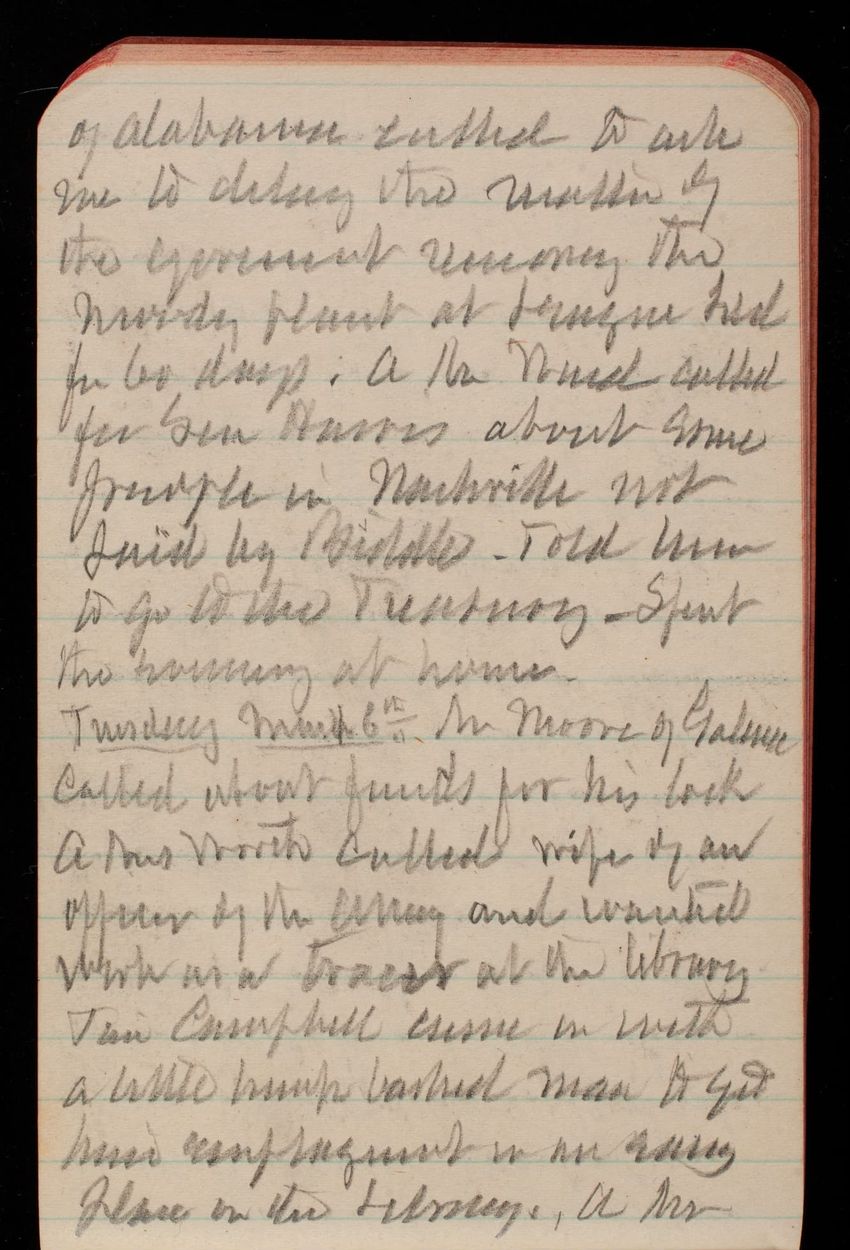 of Alabama called to ask
me to delay the matter of
the government removing the
plant at League Isld
for 60 days. A Mr Wood called
for Genl Harris about some
people in Nashville not
paid by Biddle - Told him
to go to the Treasury - Spent
the evening at home.
Tuesday March 6th Mr Moore of Galena
called about funds for his lock
A Mrs Worth called wife of an
officer of the Army and wanted
work as a tracer at the library
Tim Campbell came in with
a little hump backed man to get
him employment in an easy
place in the Library. A Mr